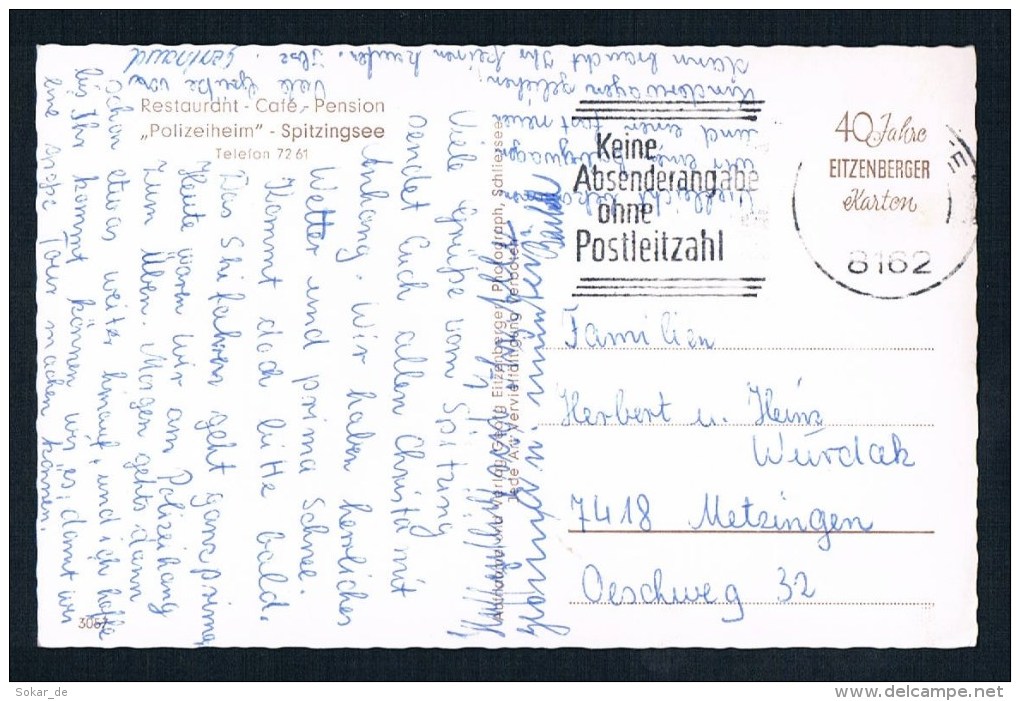 Restaurant - Café - Pension
„Polizeiheim" - Spitzingsee
Telefon 7261
Viele Grüße vom Spitzing
sendet Euch allen Christa mit
Anhang. Wir haben herrliches
Wetter und prima Schnee.
Kommt doch bitte bald.
Das Skifahren geht ganz prima,
Heute waren wir am Polizeihang
zum Üben. Morgen gehts dann
schon etwas weiter hinauf, und ich hoffe
bis Ihr kommt können wir es, damit wir
eine Tour machen können.
Viele Grüße von
Gerntraud
und einen fast neuen
Kinderwagen geliehen
dann braucht Ihr keinen kaufen. Ilse.
Verlag Georg Eitzenberger, Photograph, Schliersee
Jede Art Vervielfältigung verboten
3087
Keine
Absenderangabe
ohne
Postleitzahl
8162
40 Jahre
EITZENBERGER
Karten
Familien
Herbert u. Heinz
Wurdak
7418 Metzingen
Oeschweg 32
Sokar_de
www.delcampe.net